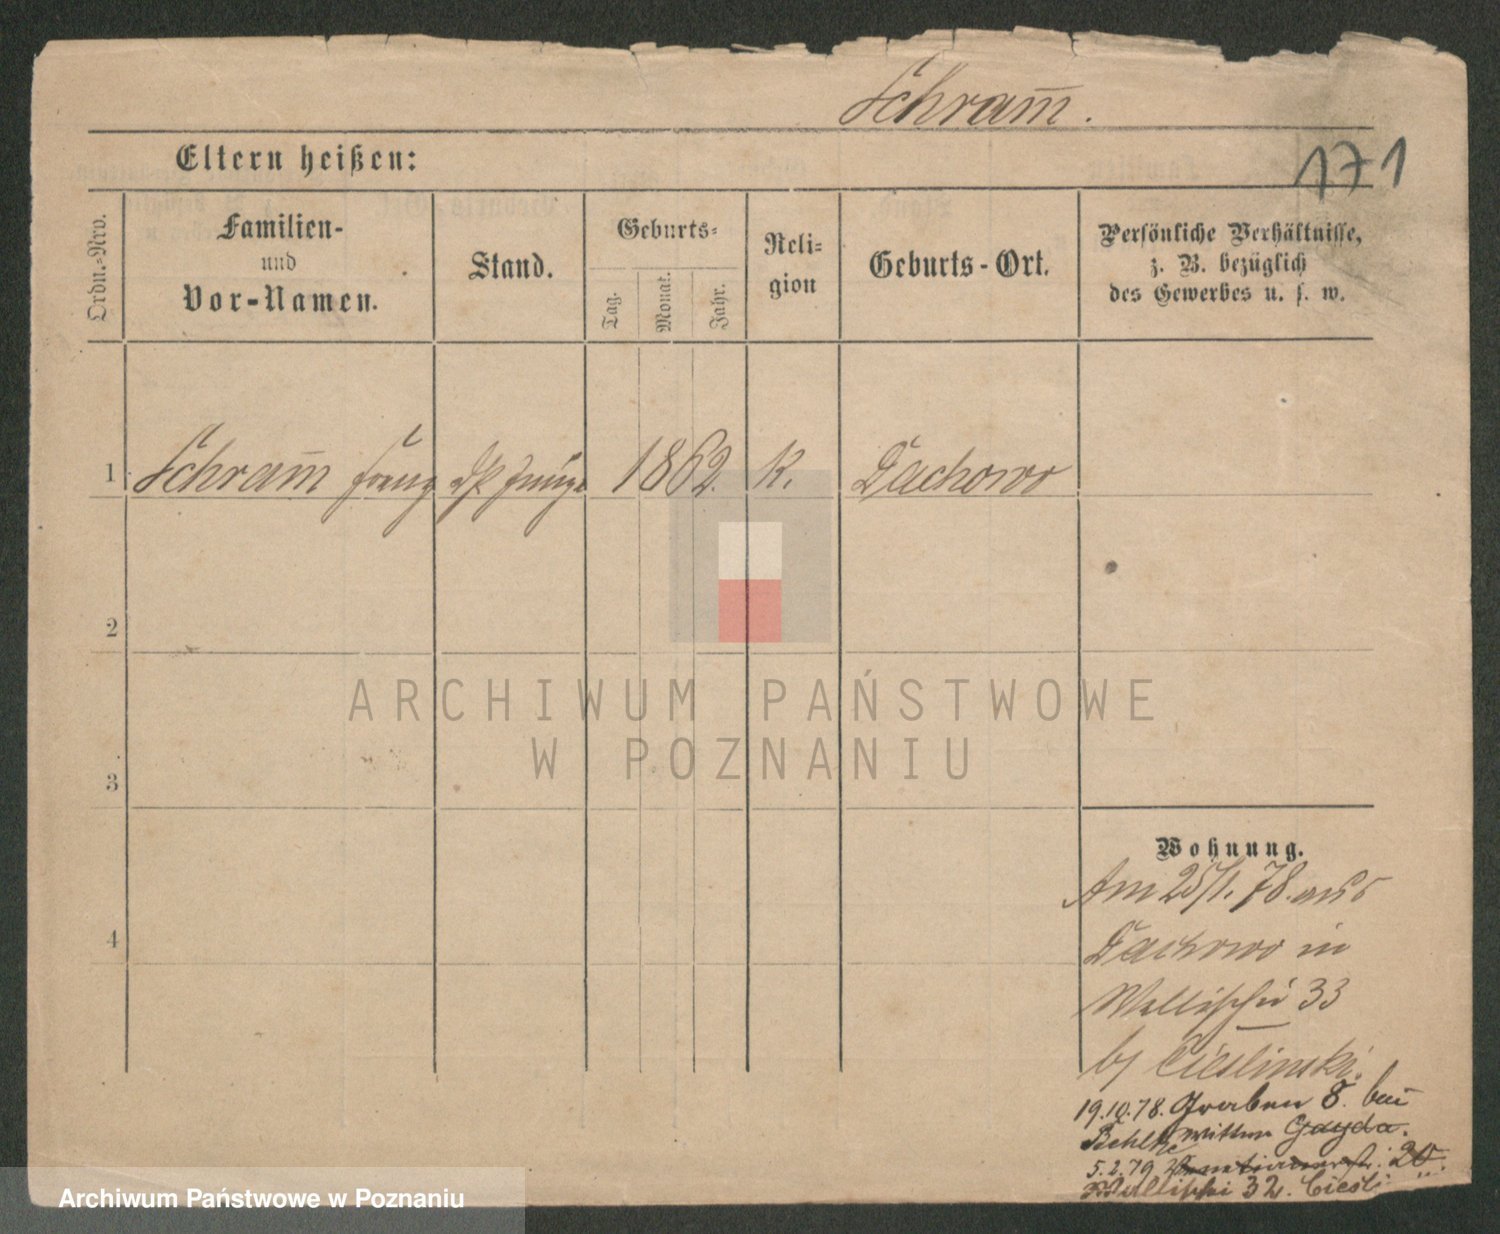 Schram̄.
171
Eltern heißen:
Ordn.-Nro.
Familien-
und
Vor-Namen.
Stand.
Geburts-
Tag.
Monat.
Jahr.
Reli-
gion
Geburts-Ort.
Persönliche Verhältnisse,
z. B. bezüglich
des Gewerbes u. s. w.
1 Schram̄ Franz 1862. K. Dachowo
2
3
4
ARCHIWUM PAŃSTWOWE
W POZNANIU
Wohnung.
Am 25/1. 78. aus
Dachowo in
Wallischei 33
b/ Cieslinski.
19.10.78. Graben 8. bei
Wittwe Gayda.
5.2.79 20.
Wallischei 32. Ciesli
Archiwum Państwowe w Poznaniu